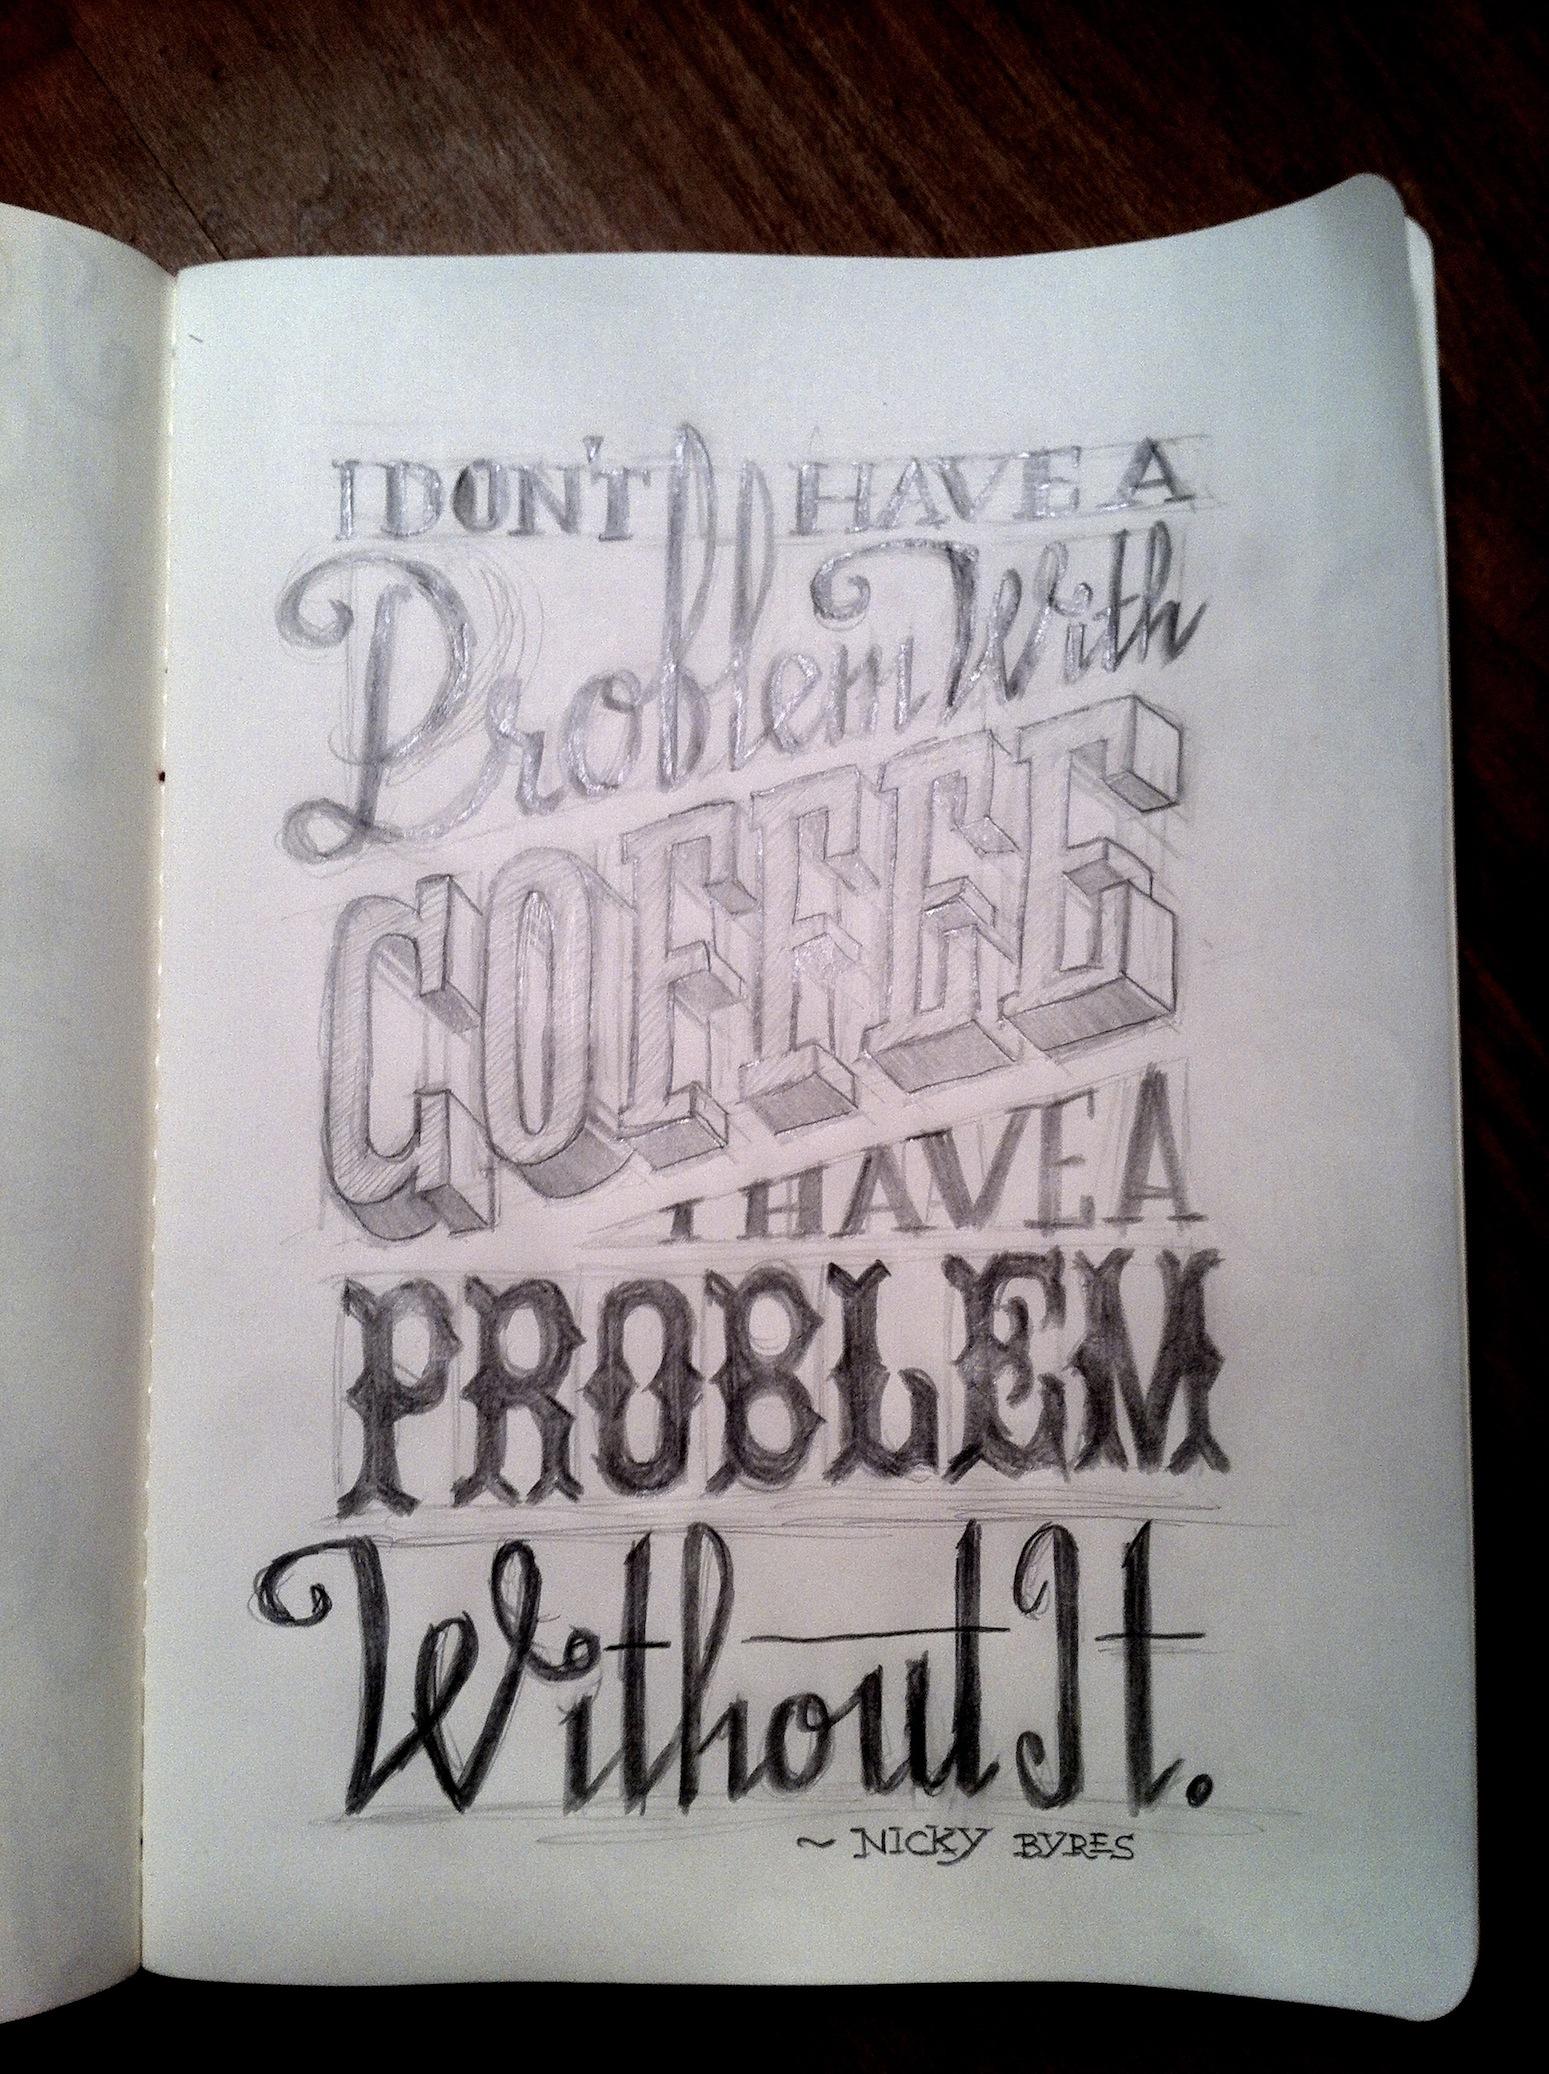 I DON'T HAVE A
Problem With
COFFEE
I HAVE A
PROBLEM
Without It.
~ NICKY BYRES